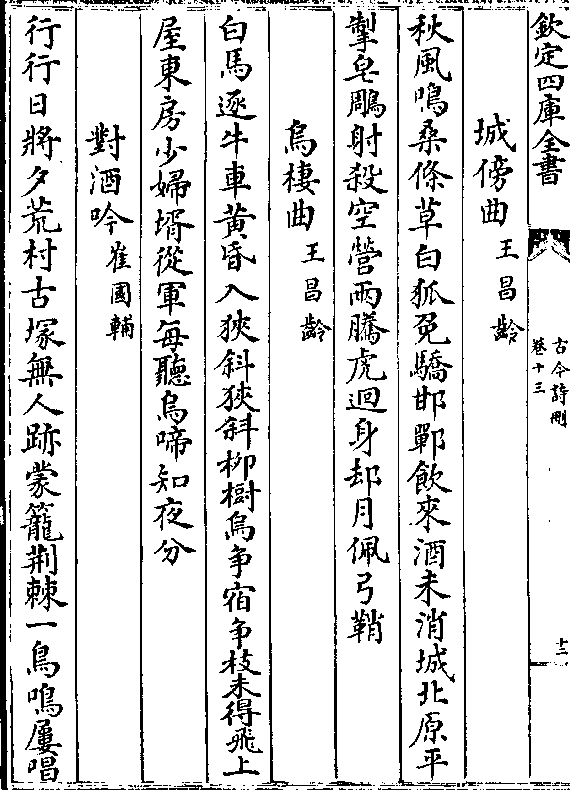 欽定四庫全書
古今詩刪
卷十三
十三
城傍曲 王昌齡
秋風鳴桑條草白狐兔驕邯鄲飲來酒未消城北原平
掣皂鵰射殺空營兩騰虎迴身却月佩弓鞘
烏棲曲 王昌齡
白馬逐牛車黃昏入狹斜狹斜柳樹烏争宿争枝未得飛上
屋東房少婦壻從軍每聽烏啼知夜分
對酒吟 崔國輔
行行日將夕荒村古塚無人跡蒙籠荆棘一鳥鳴屢唱